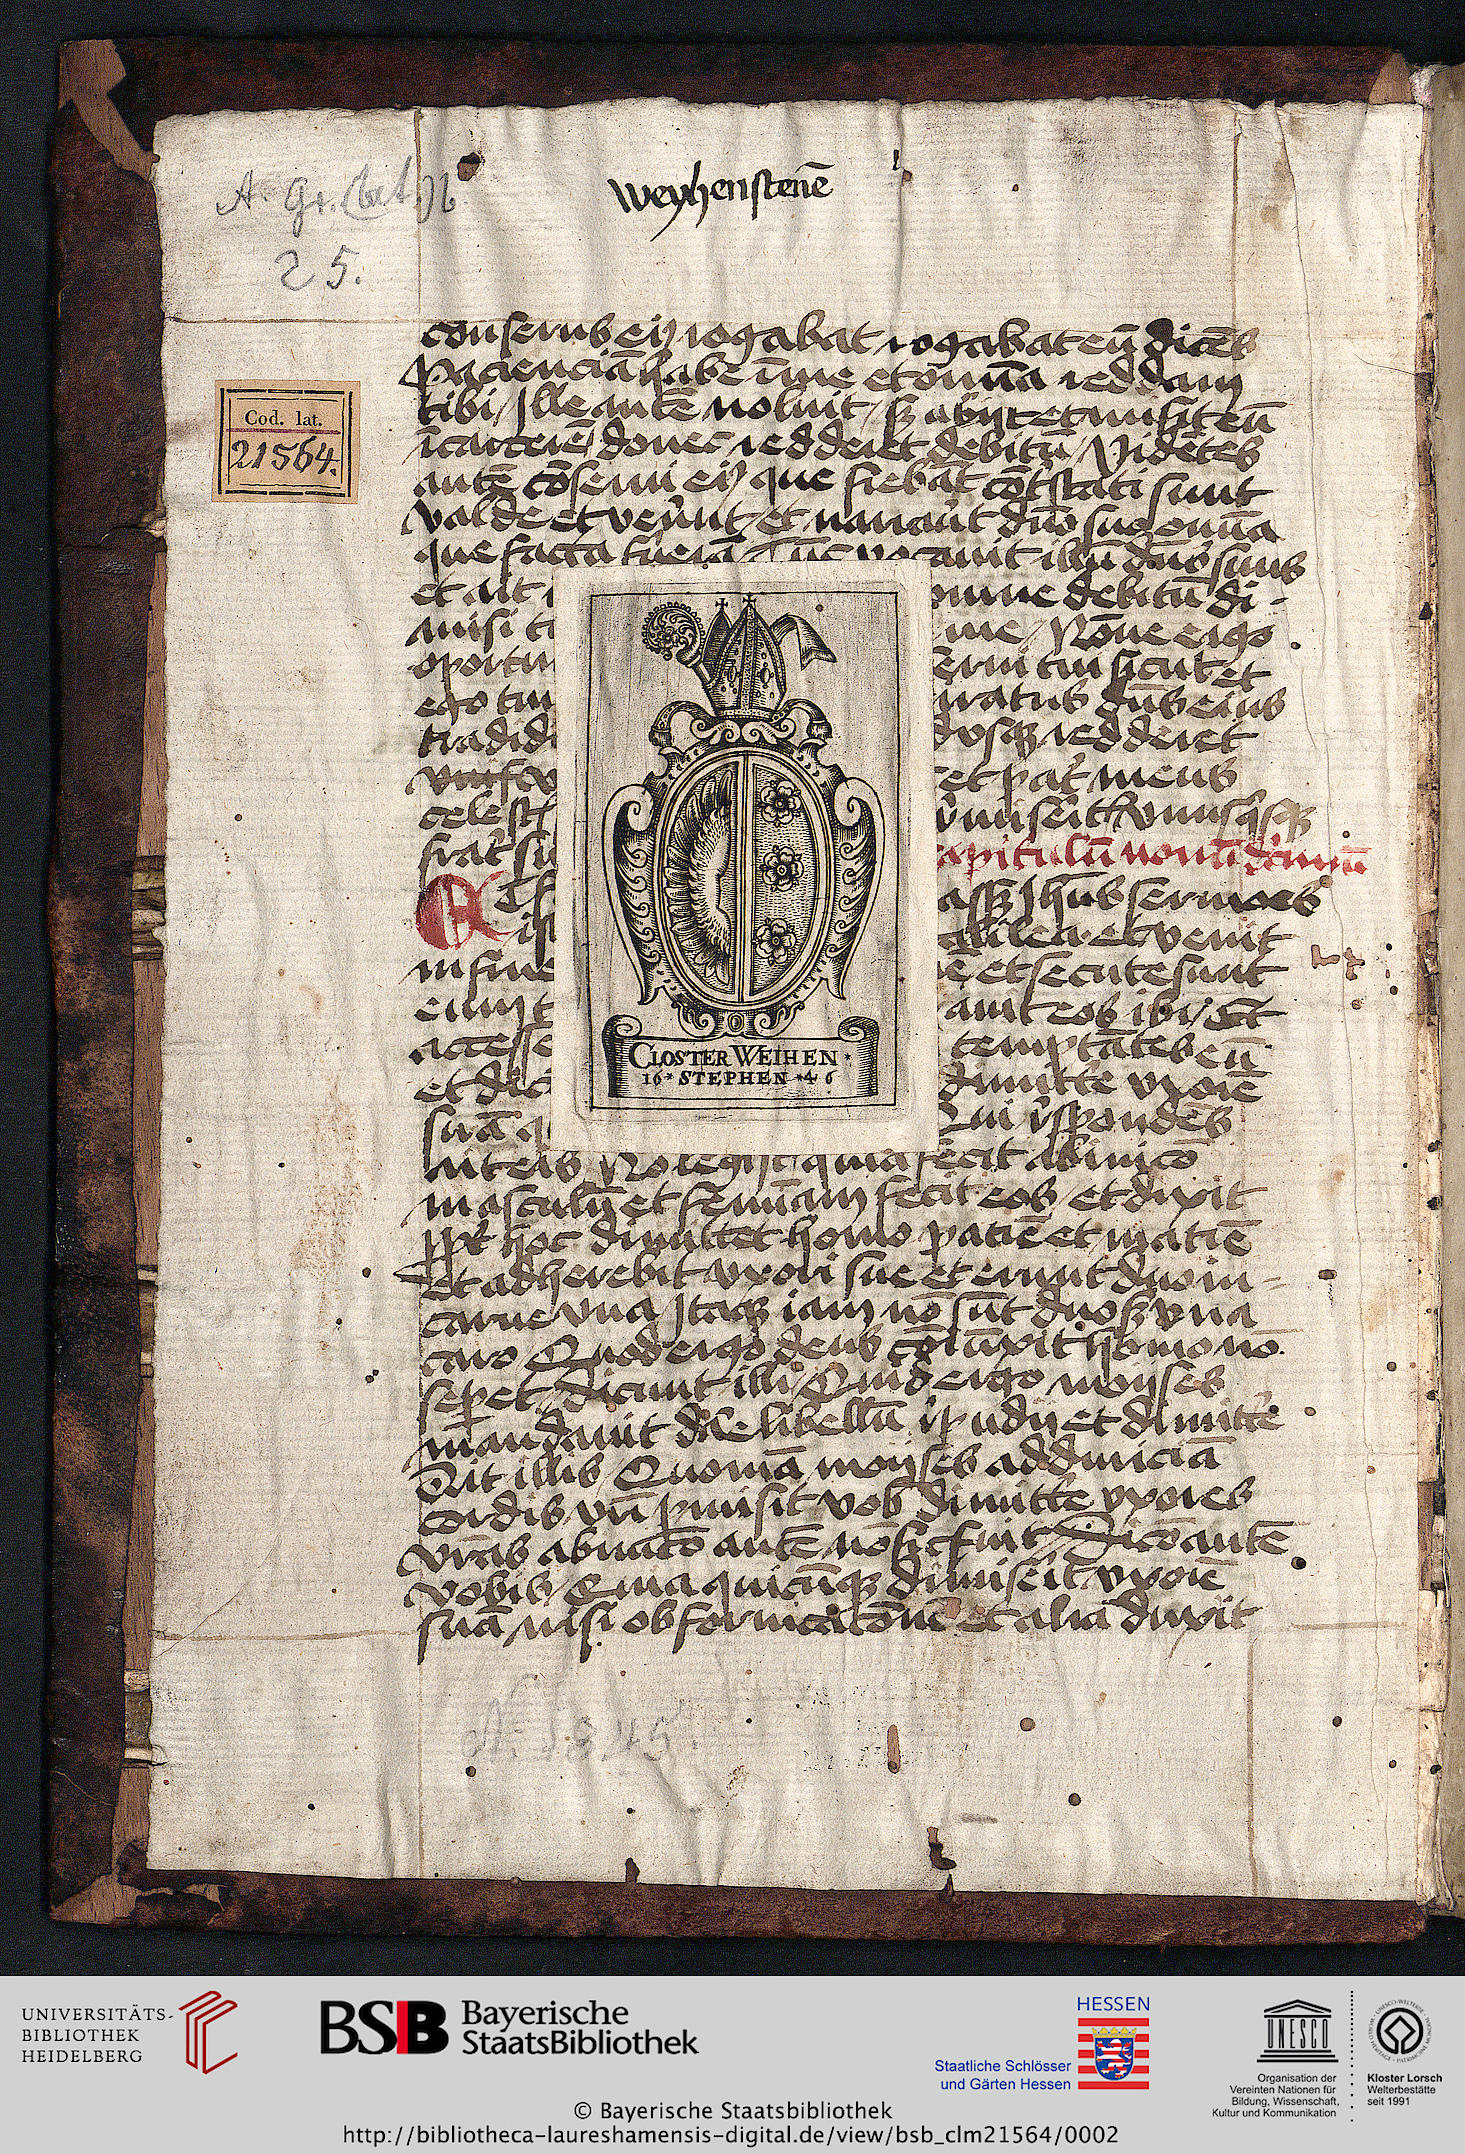 A. Gr. Cat. N.
25.
weyhenstenē
Cod. lat.
21564.
conseruus eiꝰ rogabat rogabat eū dicēs
Pacienciā habe ī me et omnia reddam
tibi / Ille autē noluit / sꝫ abijt et misit eū
ī carcerē donec redderet debitū / Vidētes
autē cōserui eiꝰ que fiebāt cōtristati sunt
valde et venerūt et narrauerūt dn̄o suo omnia
que facta fuerā Tūc vocauit illū dn̄s suus
et ait omne debitū di-
misi ti me / Nōne ergo
oportu serui tui sicut et
ego tui iratus dn̄s eius
tradidi vsqꝫ redderet
et pat̄ meus
celesti miserit vnusqͥsqꝫ
frat̄ su
capitulū nonūdecimū
asset Jhūs sermones
ist galilea et venit
in fine et secute sunt
eum t auit eos ibi / Et
accesse temptātes eū
et dice dimittē vxorē
suā q Qui rn̄spondēs
ait eis Nō legistis quia fecit ab inicō
masculū et feminam fecit eos et dixit
ppt̄ hoc dimittet homo patrē et matrē
et adherebit vxori sue et erunt duo in-
carne vna Itaqꝫ iam nō sūt duo sꝫ vna
caro Quod ergo deus cōiūxit homo nō
sepet Dicunt illi / Quid ergo moyses
mandauit dare libellū repudij et dimittē
Ait illis Quoniā moyses ad duriciā
cordis vr̄i pmisit vob dimittē vxores
vr̄as ab inicō autē nō sic fuit / Dico autē
vobis Quia quicūqꝫ dimiserit vxorē
suā nisi ob fornicatōnē et aliā duxit
CLOSTER WEIHEN *
16 * STEPHEN * 46
UNIVERSITÄTS-
BIBLIOTHEK
HEIDELBERG
BSB Bayerische
StaatsBibliothek
HESSEN
Staatliche Schlösser
und Gärten Hessen
UNESCO
Organisation der
Vereinten Nationen für
Bildung, Wissenschaft,
Kultur und Kommunikation
Kloster Lorsch
Welterbestätte
seit 1991
© Bayerische Staatsbibliothek
http://bibliotheca-laureshamensis-digital.de/view/bsb_clm21564/0002